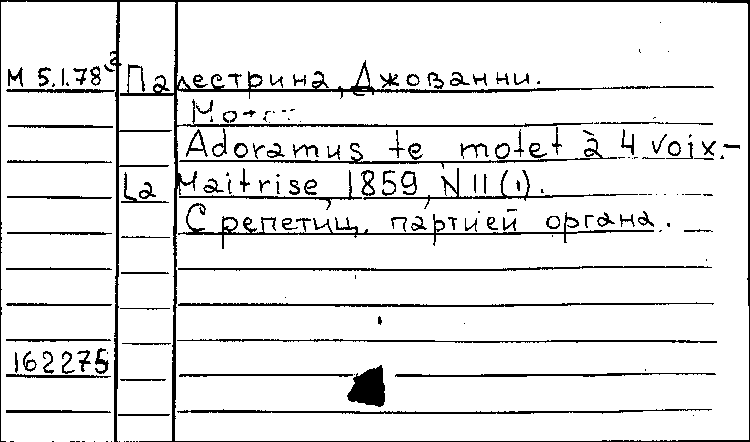 М 5.I.78³ Палестрина, Джованни.
Мотет
Adoramus te motet à 4 voix.-
La Maitrise, 1859, N 11 (1).
С репетиц. партией органа.
162275